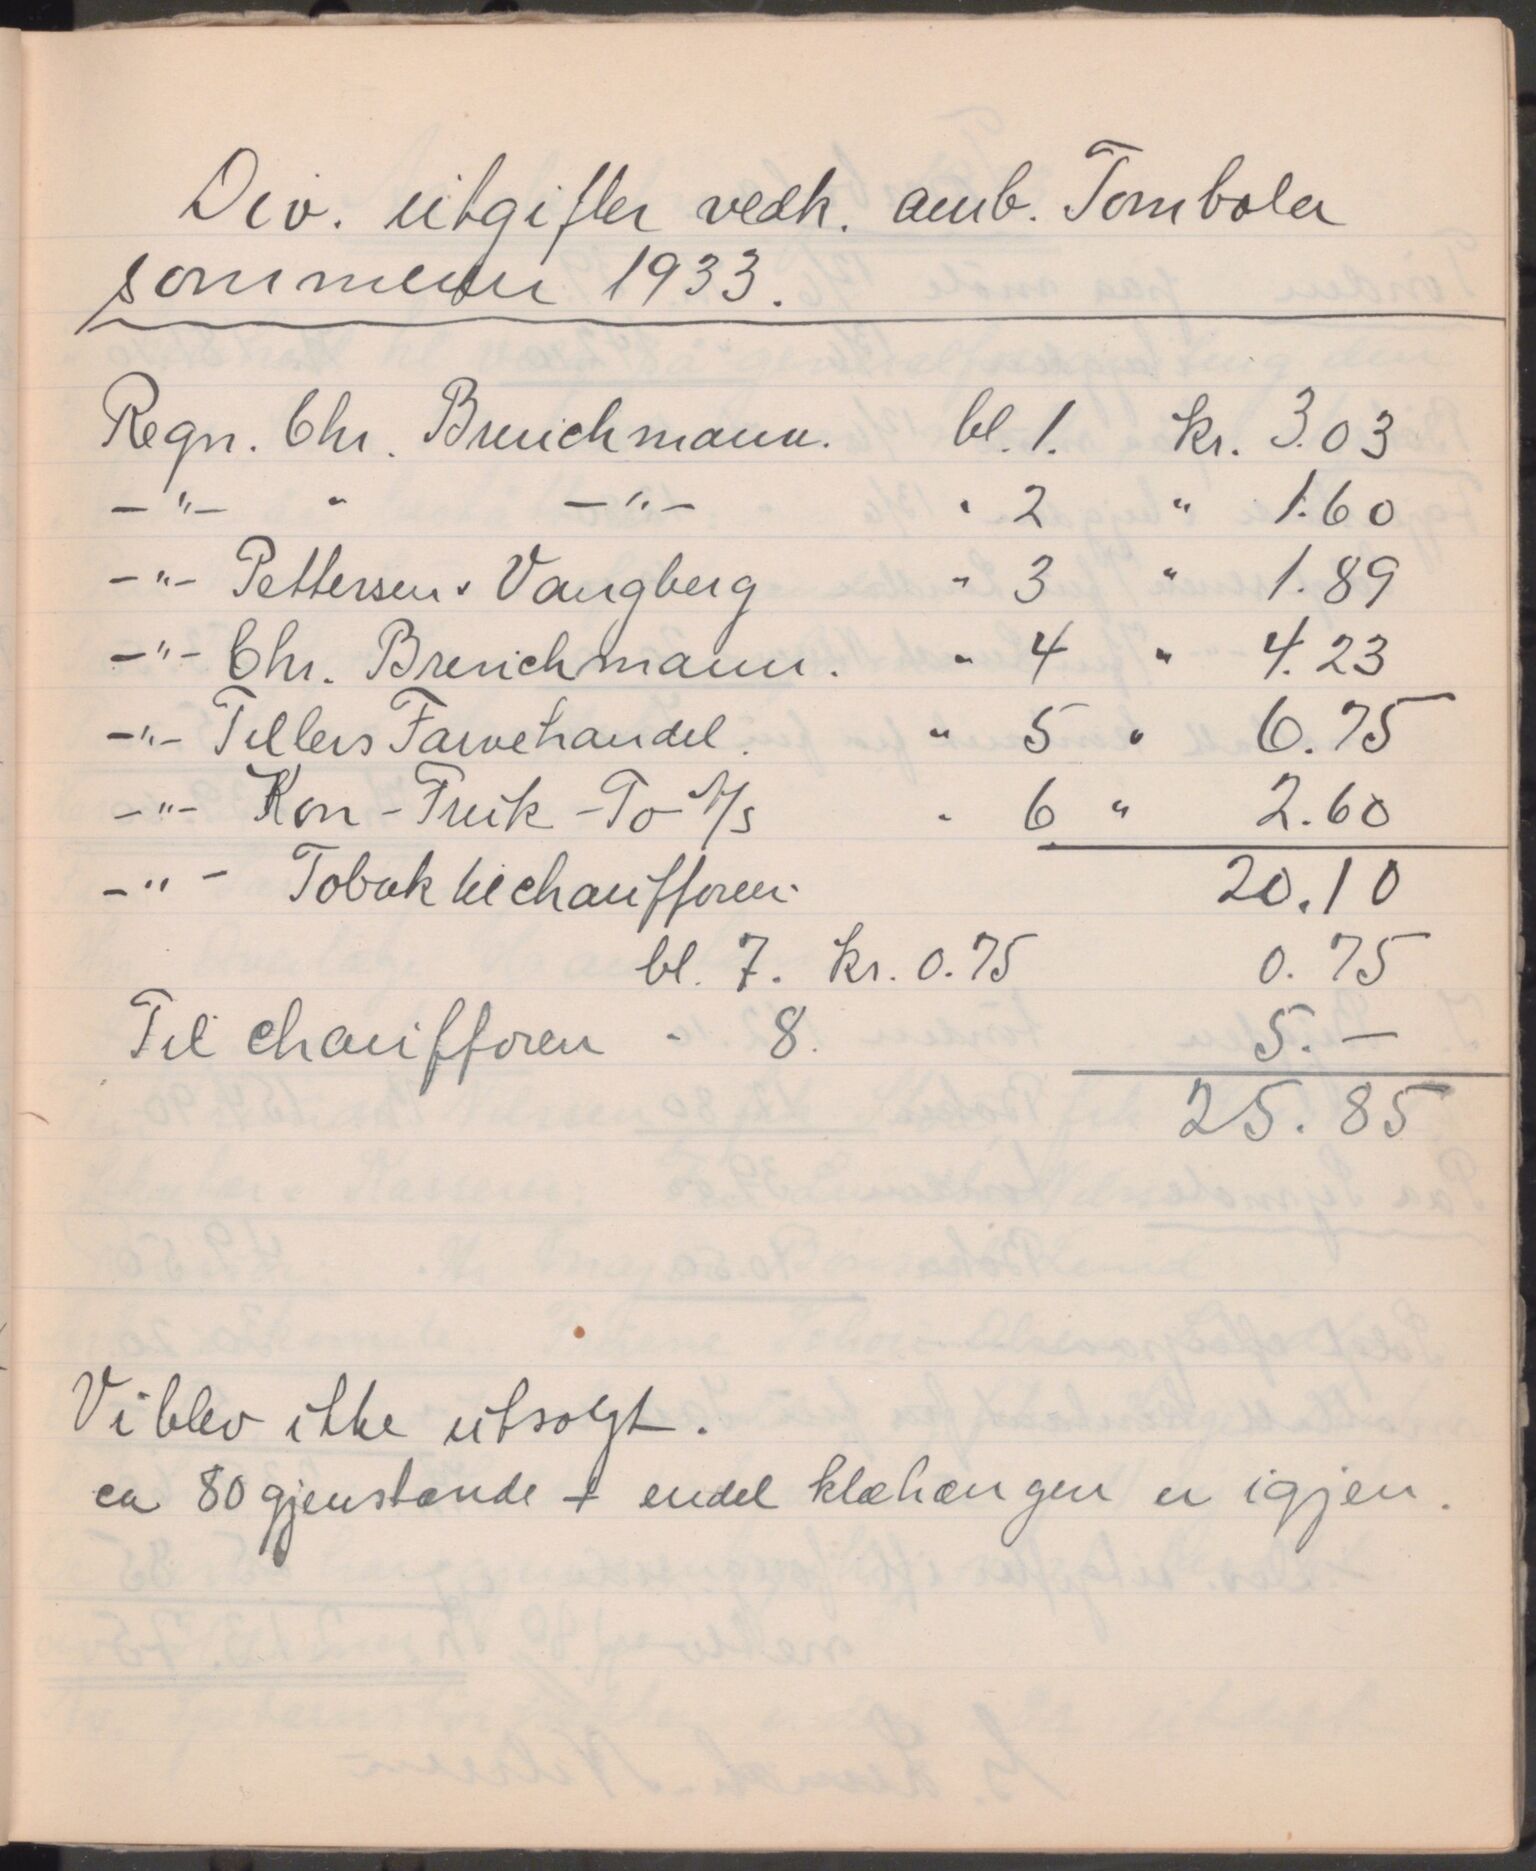 Div. utgifter vedk. amb. Tombola
sommeren 1933.
Regn. Chr. Breuichmann. bl. 1. kr. 3.03
-"- " -"- " 2 " 1.60
-"- Pettersen & Vangberg " 3 " 1.89
-"- Chr. Breuichmann. " 4 " 4.23
-"- Tillers Farvehandel. " 5 " 6.75
-"- Kon-Fruk-To A/S " 6 " 2.60
20.10
-"- Tobak til chaufføren
bl. 7. kr. 0.75 0.75
Til chaufføren " 8. 5.-
25.85
Vi blev ikke utsolgt.
ca 80 gjenstande + endel klæhængere er igjen.